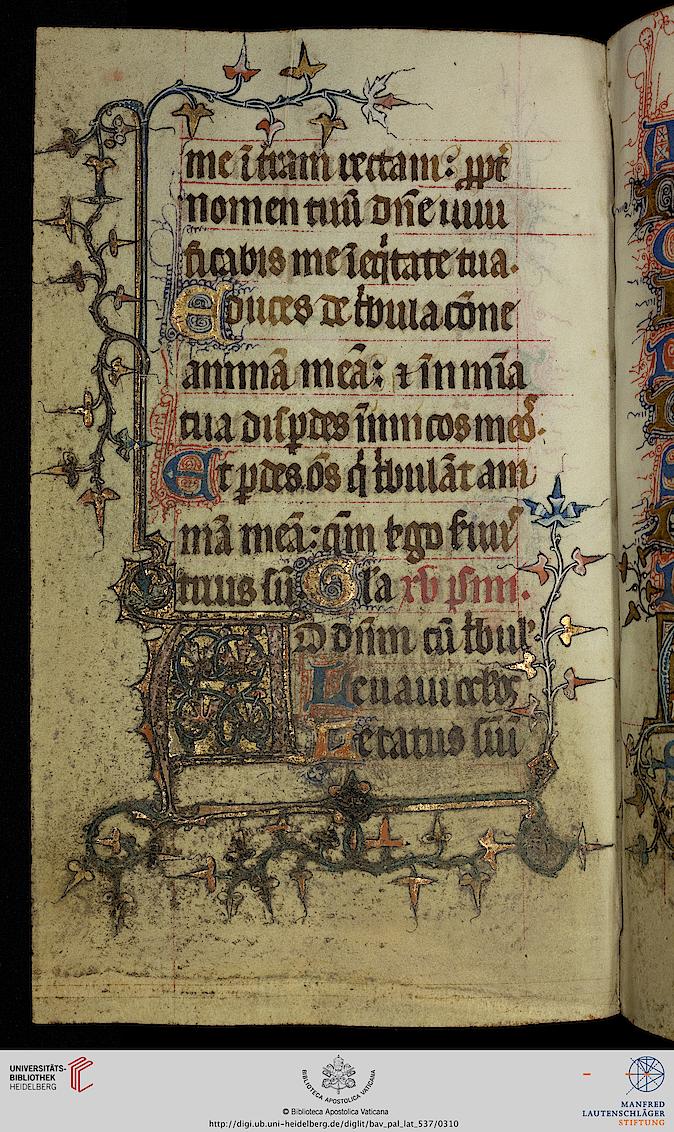 me ī tram rectam: ꝓpt̄
nomen tuū dn̄e uiui
ficabis me ī eq̇tate tua.
Educes de t̄bulacōne
animā meā: ⁊ in mīa
tua disꝑdes īimicos meoꝰ.
Et ꝑdes. ōs q̇ t̄bulāt am
mā meā: qm̄ ego
tuus sū Gla xv psm.
Ad dn̄m cū t̄bul
Leuaui oc̄los
Letatus sūm
UNIVERSITÄTS-
BIBLIOTHEK
HEIDELBERG
BIBLIOTECA APOSTOLICA VATICANA
© Biblioteca Apostolica Vaticana
http://digi.ub.uni-heidelberg.de/diglit/bav_pal_lat_537/0310
MANFRED
LAUTENSCHLÄGER
STIFTUNG